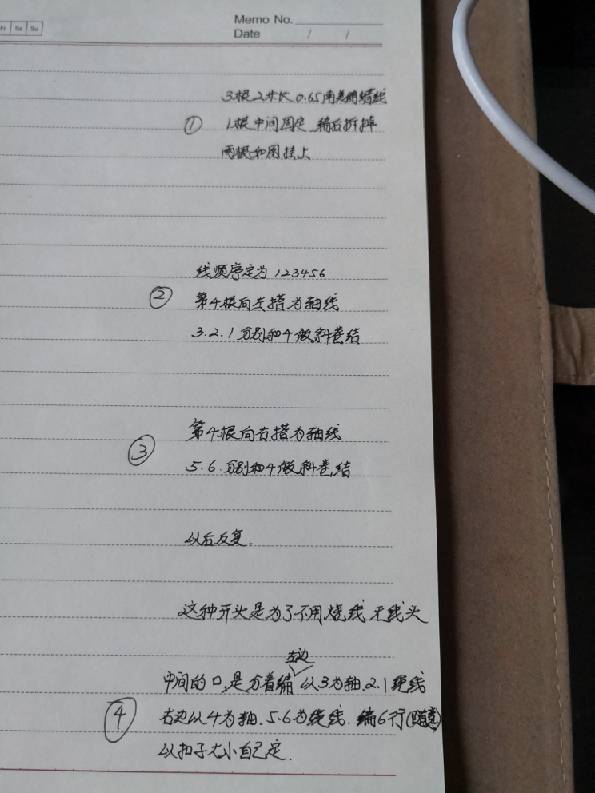 Sa
Su
Memo No.
Date / /
3根2米长0.65南美蜡线
① 1根中间固定 编后拆掉
两根和用挂上
线顺序定为123456
② 第4根向左搭为轴线
3.2.1分别和4做斜卷结
③ 第4根向右搭为轴线
5.6.分别和4做斜卷结
以后反复.
这种开头是为了不用烧线 无线头
左边
中间的口,是分着编 以3为轴.2.1绕线
④ 右边以4为轴.5.6为绕线.编6行
以扣子大小自己定.